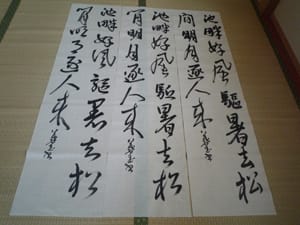 池畔好風駆暑去松
間明月逐人来
池畔好風駆暑去松
間明月逐人来
池畔好風駆暑去松
間明月逐人来